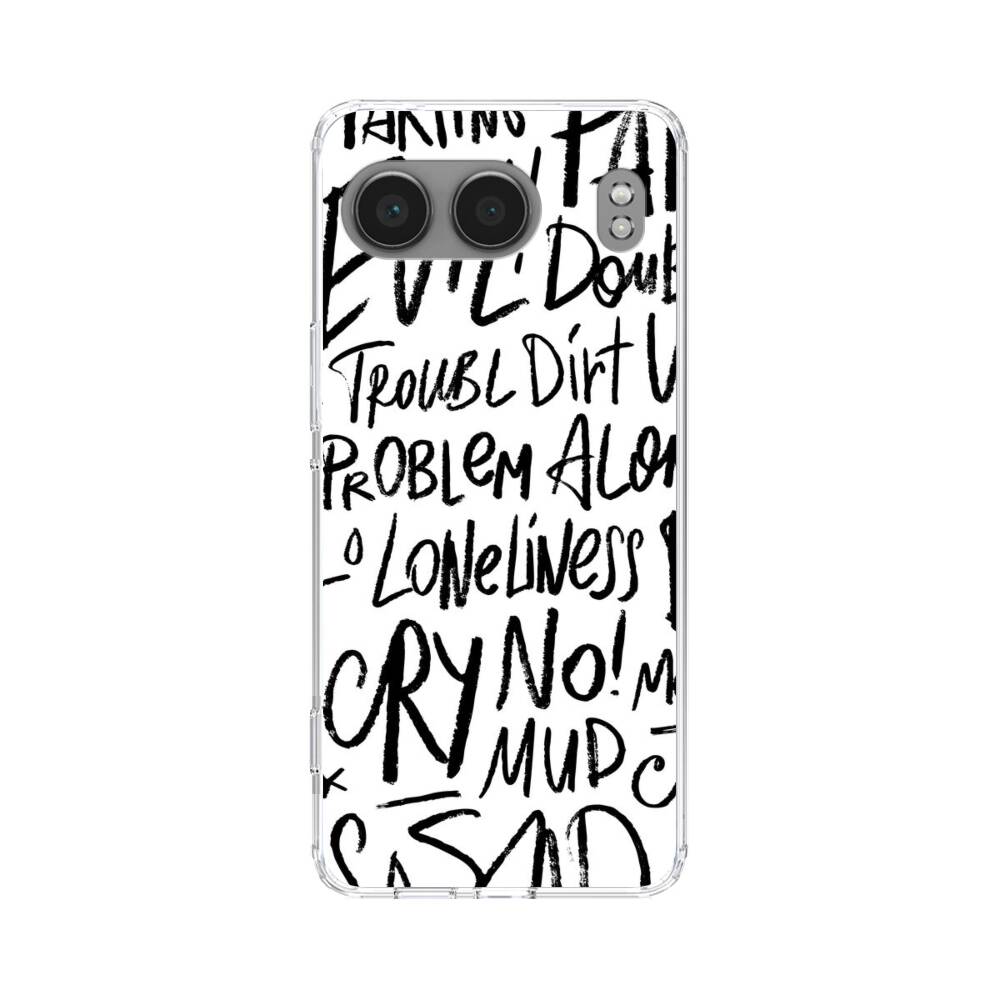 EVIL! DouB
TROUBL Dirt
PROBLEM ALON
LONELINESS
CRY NO!
MUD
SAD